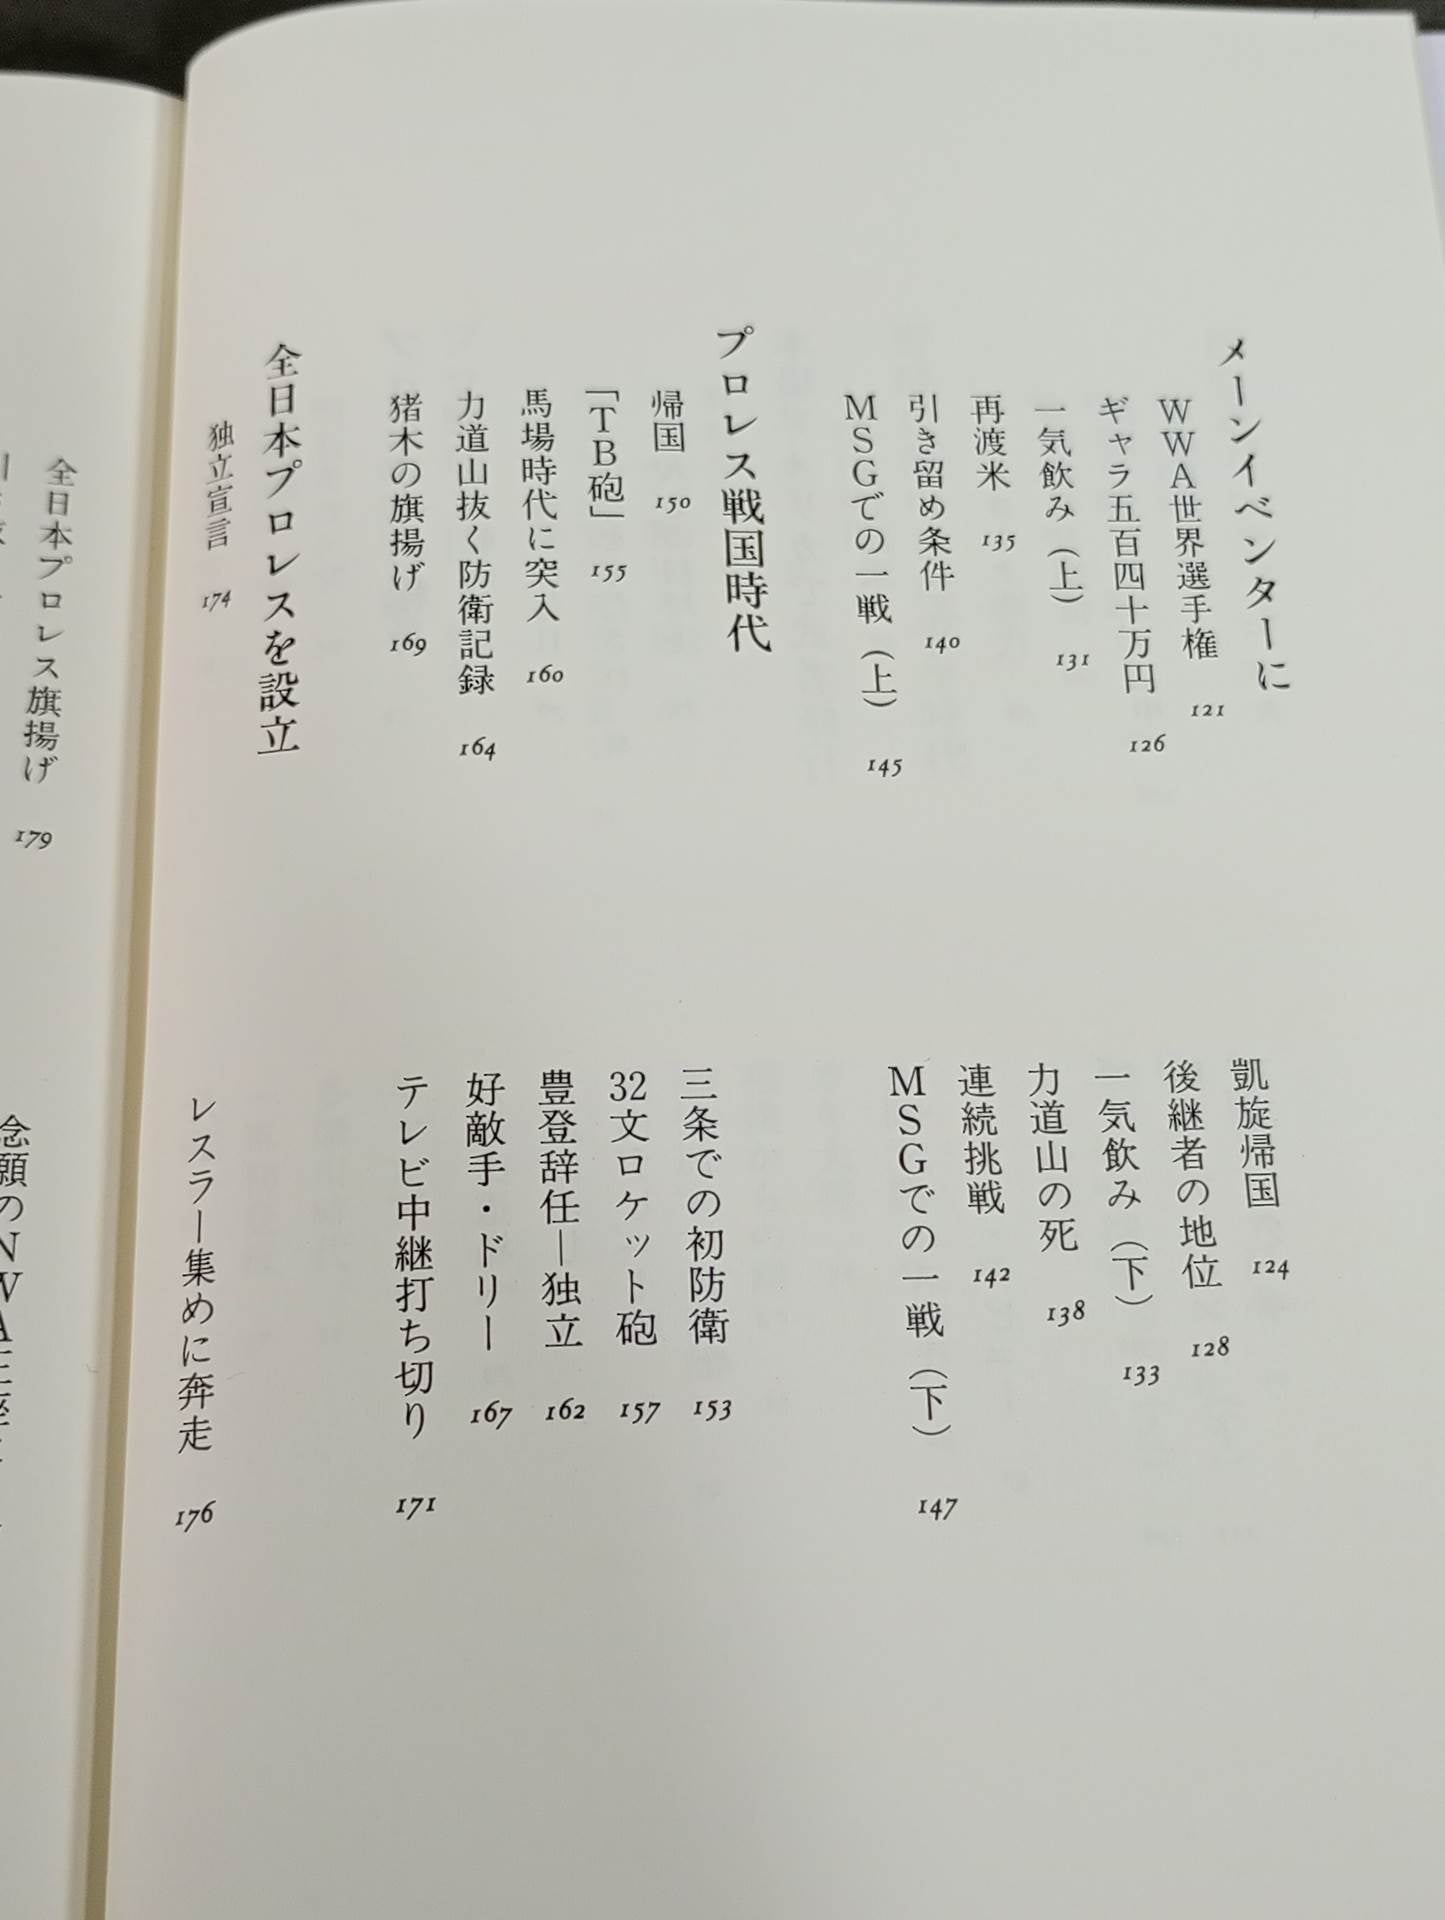 メーンイベンターに
WWA世界選手権 121
凱旋帰国 124
ギャラ五百四十万円 126
後継者の地位 128
一気飲み(上) 131
一気飲み(下) 133
再渡米 135
力道山の死 138
引き留め条件 140
連続挑戦 142
MSGでの一戦(上) 145
MSGでの一戦(下) 147
プロレス戦国時代
帰国 150
三条での初防衛 153
「TB砲」 155
32文ロケット砲 157
馬場時代に突入 160
豊登辞任―独立 162
力道山抜く防衛記録 164
好敵手・ドリー 167
猪木の旗揚げ 169
テレビ中継打ち切り 171
全日本プロレスを設立
独立宣言 174
レスラー集めに奔走 176
全日本プロレス旗揚げ 179
念願のNWA王座